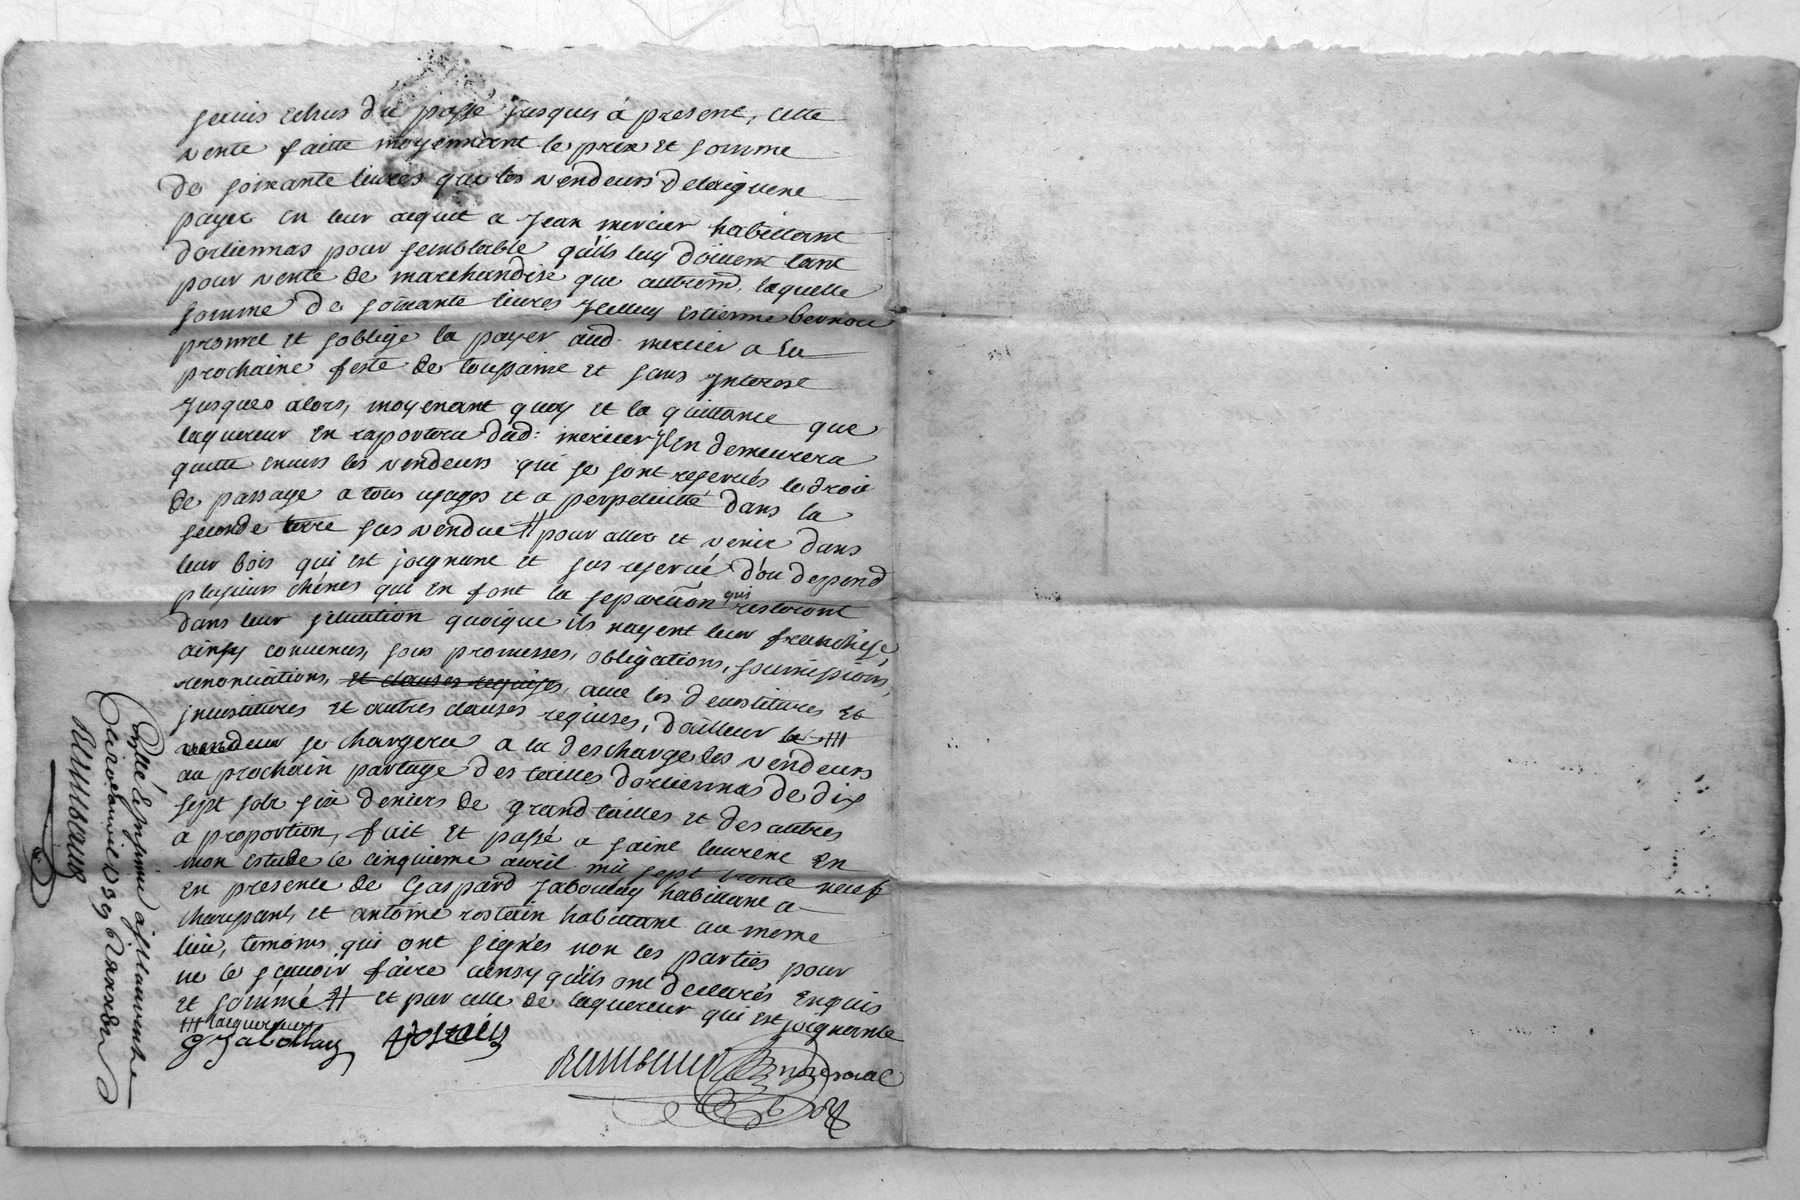 servis echus du passé jusques à present, cette
vente faitte moyennant le prix et somme
de soixante livres que les vendeurs delaiguent
payer en leur acquit a Jean mercier habittant
dorliennas pour semblable quils luy doivent tant
pour vente de marchandise que autrem.t, laquelle
somme de soixante livres Jcelluy estienne bernou
promet et soblige la payer aud. mercier a la
prochaine feste de toussaint et sans Jnterest
Jusques alors, moyenant quoy et la quittance que
laquereur en raportera dud: mercier Jl En demeurera
quitte envers les vendeurs qui se sont reservés le droit
de passage a tous usages et a perpetuitté dans la
seconde terre sus vendue # pour aller et venir dans
leur bois qui est joignant et sus reservé d'ou depend
plusieurs chênes qui en font la separation qui resteront
dans leur situation quoique ils nayent leur franchise,
ainsy convenus, sous promesses, obligations, soumissions,
renonciations, et clauses requises, avec les devestitures et
jnvestitures et autres clauses requises, dailleur le #
vendeur se chargera a la descharge des vendeurs
au prochain partage des tailles dorliennas de dix
sept sols six deniers de grand tailles et des autres
a proportion, fait et passé a saint laurent en
mon estude le cinquieme avril mil sept trente neuf
En presence de Gaspard Jaboulay habittant a
chaussant, et antoine rostain habittant au meme
lieu, temoins qui ont signés non les parties pour
ne le sçavoir faire ainsy quils ont declarés enquis
et sommé # et par celle de laquereur qui est joignante
# lacquereur
G Jaboulay Rostain
Rambaud
Nore royal